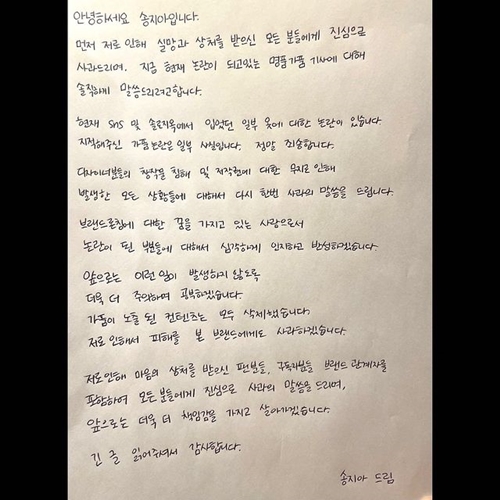 안녕하세요 송지아입니다.
먼저 저로 인해 실망과 상처를 받으신 모든 분들에게 진심으로
사과드리며, 지금 현재 논란이 되고있는 명품가품 기사에 대해
솔직하게 말씀드리려고합니다.
현재 SNS 및 솔로지옥에서 입었던 일부 옷에 대한 논란이 있습니다
지적해주신 가품논란은 일부 사실입니다. 정말 죄송합니다.
디자이너분들의 창작물 침해 및 저작권에 대한 무지로 인해
발생한 모든 상황들에 대해서 다시 한번 사과의 말씀을 드립니다.
브랜드론칭에 대한 꿈을 가지고 있는 사람으로서
논란이 된 부분들에 대해서 심각하게 인지하고 반성하겠습니다.
앞으로는 이런 일이 발생하지 않도록
더욱 더 주의하며 공부하겠습니다.
가품이 노출 된 컨텐츠는 모두 삭제했습니다
저로 인해서 피해를 본 브랜드에게도 사과하겠습니다.
저로인해 마음의 상처를 받으신 팬분들, 구독자분들 브랜드 관계자를
포함하여 모든 분들에게 진심으로 사과의 말씀을 드리며,
앞으로는 더욱 더 책임감을 가지고 살아가겠습니다.
긴 글 읽어주셔서 감사합니다.
송지아 드림